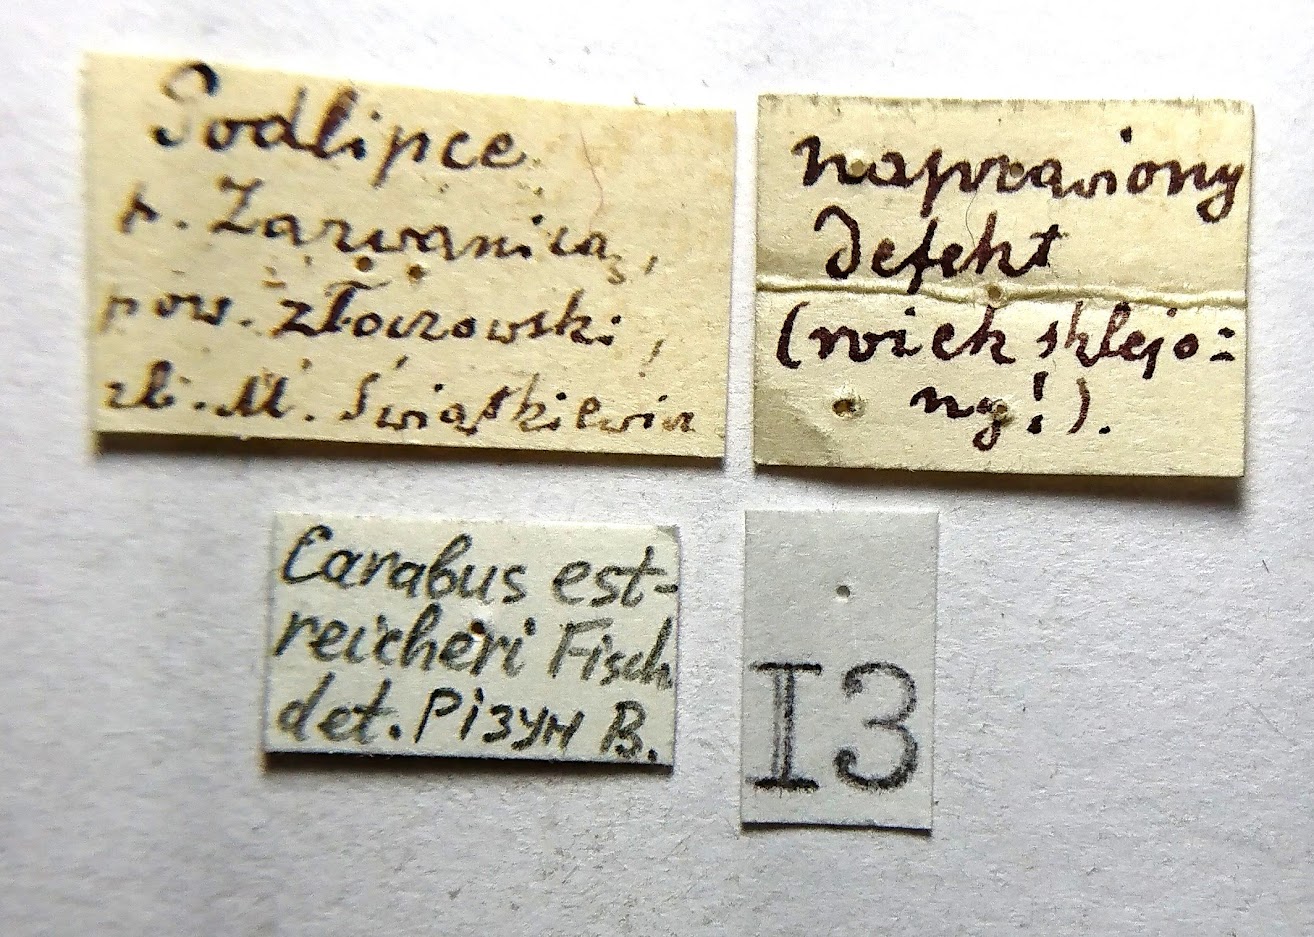 Podlipce
p. Zarwanica,
pow. złoczowski,
zb. M. Świątkiewicz
naprawiony
defekt
(rożek sklejo=
ny!).
Carabus est-
reicheri Fisch
det. Різун В.
I3